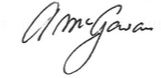 A McGowan